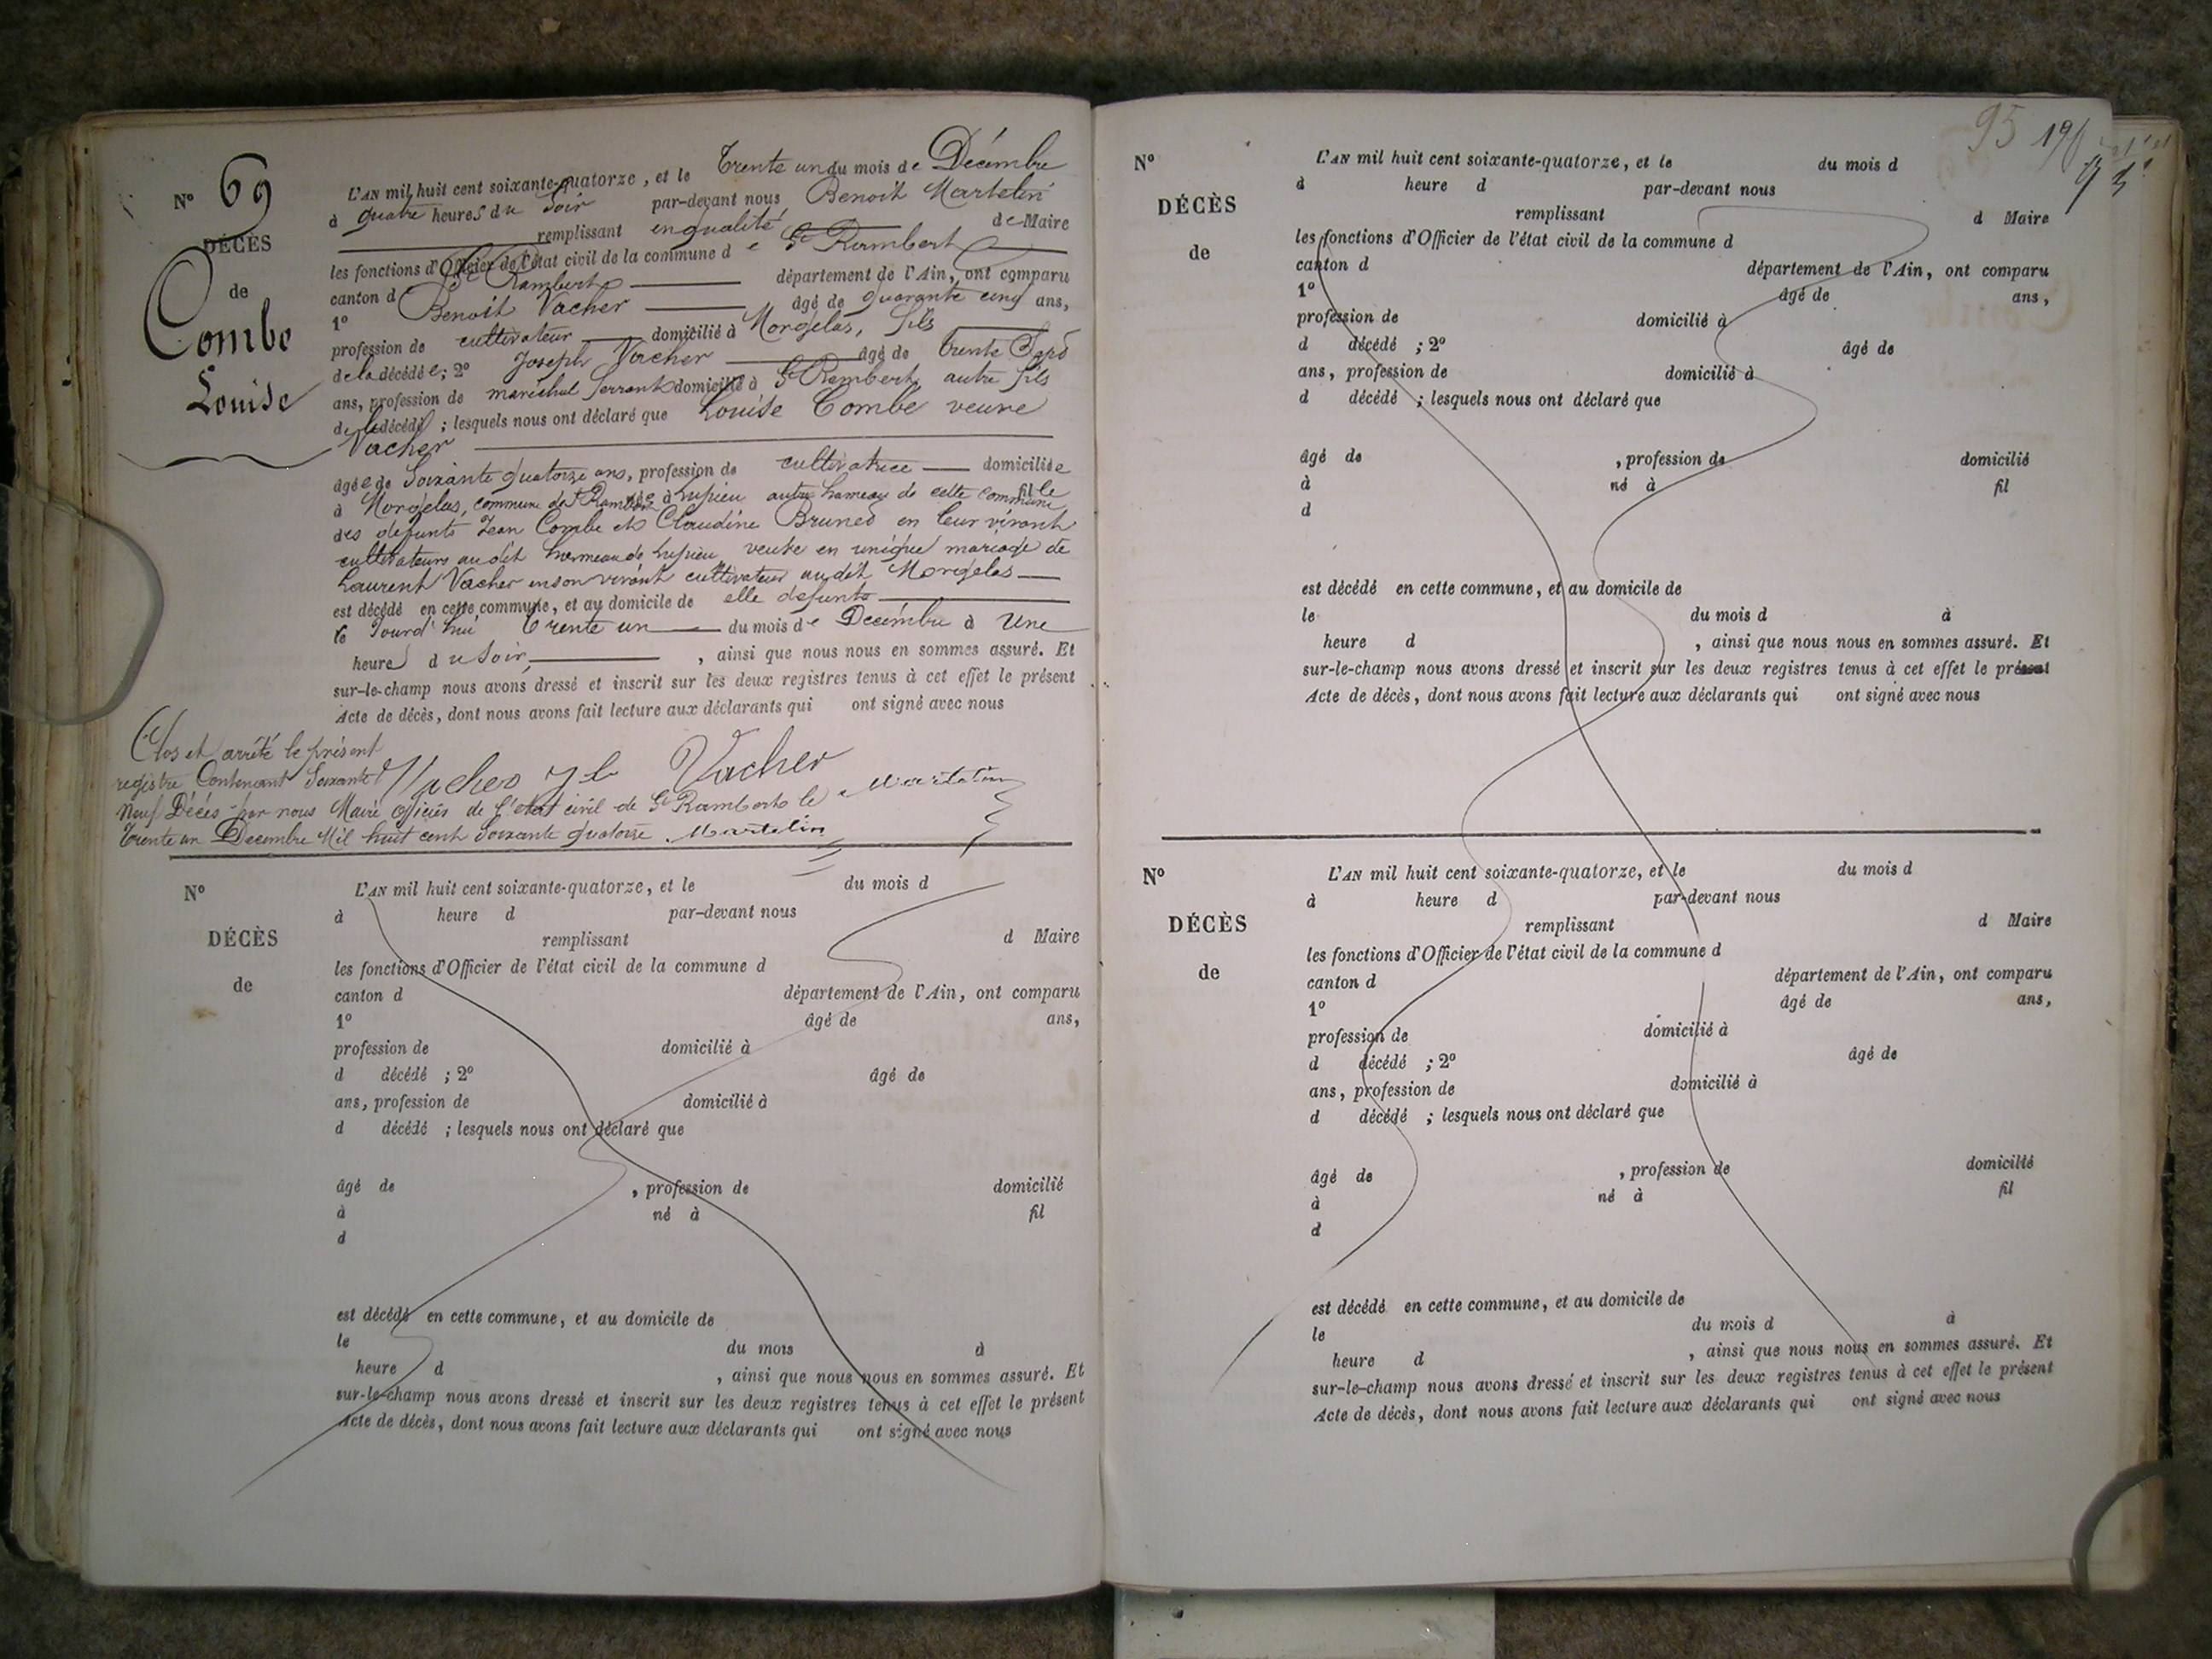 N° 69
DÉCÈS
de
Combe
Louise
L'AN mil huit cent soixante-quatorze, et le Trente un du mois de Décembre
à quatre heures du Soir par-devant nous Benoit Martelin
remplissant en qualité de Maire
les fonctions d'Officier de l'état civil de la commune de St Rambert
canton d St Rambert département de l'Ain, ont comparu
1° Benoit Vacher âgé de quarante cinq ans,
profession de cultivateur domicilié à Morgelas, fils
de la décédée; 2° Joseph Vacher âgé de trente Sept
ans, profession de maréchal ferrant domicilié à St Rambert, autre fils
de la décédé; lesquels nous ont déclaré que Louise Combe veuve
Vacher
âgée de Soixante quatorze ans, profession de cultivatrice domiciliée
à Morgelas, commune de St Rambert née à Lupieu autre hameau de cette commune fille
des défunts Jean Combe et Claudine Brunet en leur vivant
cultivateurs au dit hameau de Lupieu veuve en unique mariage de
Laurent Vacher en son vivant cultivateur au dit Morgelas
est décédé en cette commune, et au domicile de elle défunte
le Jourd'hui Trente un du mois de Décembre à Une
heure du Soir, ainsi que nous nous en sommes assuré. Et
sur-le-champ nous avons dressé et inscrit sur les deux registres tenus à cet effet le présent
Acte de décès, dont nous avons fait lecture aux déclarants qui ont signé avec nous
Vacher Vacher Martelin
Clos et arrêté le présent
registre Contenant Soixante
Neuf Décés par nous Maire officier de l'état civil de St Rambert le
Trente un Décembre Mil huit cent Soixante quatorze Martelin
N°
DÉCÈS
de
L'AN mil huit cent soixante-quatorze, et le du mois d
à heure d par-devant nous
remplissant d Maire
les fonctions d'Officier de l'état civil de la commune d
canton d département de l'Ain, ont comparu
1° âgé de ans,
profession de domicilié à
d décédé ; 2° âgé de
ans, profession de domicilié à
d décédé ; lesquels nous ont déclaré que
âgé de , profession de domicilié
à né à fil
d
est décédé en cette commune, et au domicile de
le du mois à
heure d , ainsi que nous nous en sommes assuré. Et
sur-le-champ nous avons dressé et inscrit sur les deux registres tenus à cet effet le présent
Acte de décès, dont nous avons fait lecture aux déclarants qui ont signé avec nous
95
N°
DÉCÈS
de
L'AN mil huit cent soixante-quatorze, et le du mois d
à heure d par-devant nous
remplissant d Maire
les fonctions d'Officier de l'état civil de la commune d
canton d département de l'Ain, ont comparu
1° âgé de ans,
profession de domicilié à
d décédé ; 2° âgé de
ans, profession de domicilié à
d décédé ; lesquels nous ont déclaré que
âgé de , profession de domicilié
à né à fil
d
est décédé en cette commune, et au domicile de
le du mois d à
heure d , ainsi que nous nous en sommes assuré. Et
sur-le-champ nous avons dressé et inscrit sur les deux registres tenus à cet effet le présent
Acte de décès, dont nous avons fait lecture aux déclarants qui ont signé avec nous
N°
DÉCÈS
de
L'AN mil huit cent soixante-quatorze, et le du mois d
à heure d par-devant nous
remplissant d Maire
les fonctions d'Officier de l'état civil de la commune d
canton d département de l'Ain, ont comparu
1° âgé de ans,
profession de domicilié à
d décédé ; 2° âgé de
ans, profession de domicilié à
d décédé ; lesquels nous ont déclaré que
âgé de , profession de domicilié
à né à fil
d
est décédé en cette commune, et au domicile de
le du mois d à
heure d , ainsi que nous nous en sommes assuré. Et
sur-le-champ nous avons dressé et inscrit sur les deux registres tenus à cet effet le présent
Acte de décès, dont nous avons fait lecture aux déclarants qui ont signé avec nous